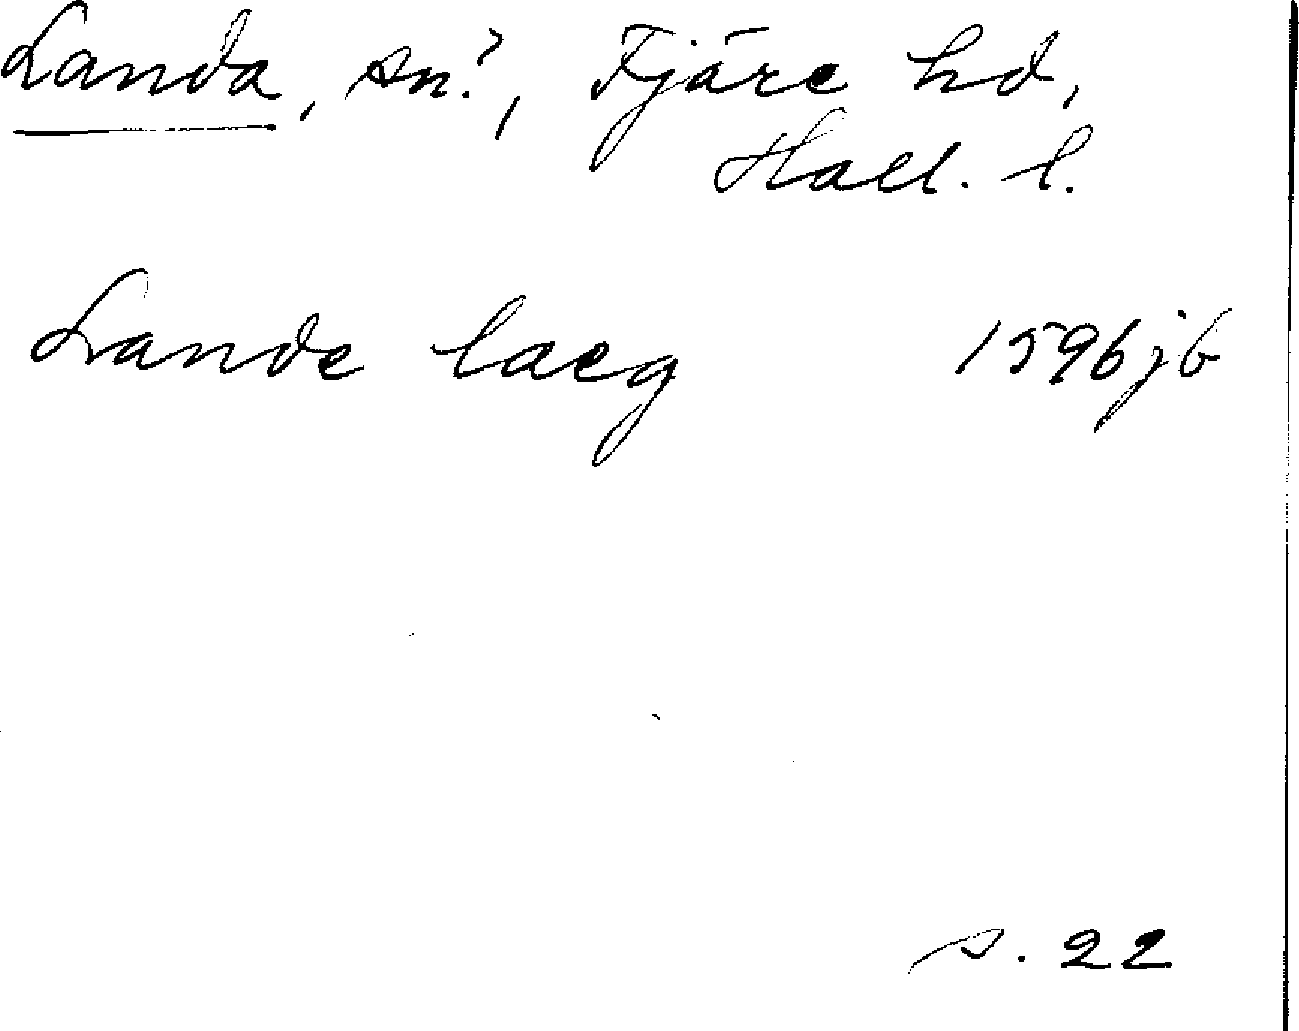 Landa, sn?, Fjäre hd,
Hall. l.
Lande laeg 1596jb
s. 22